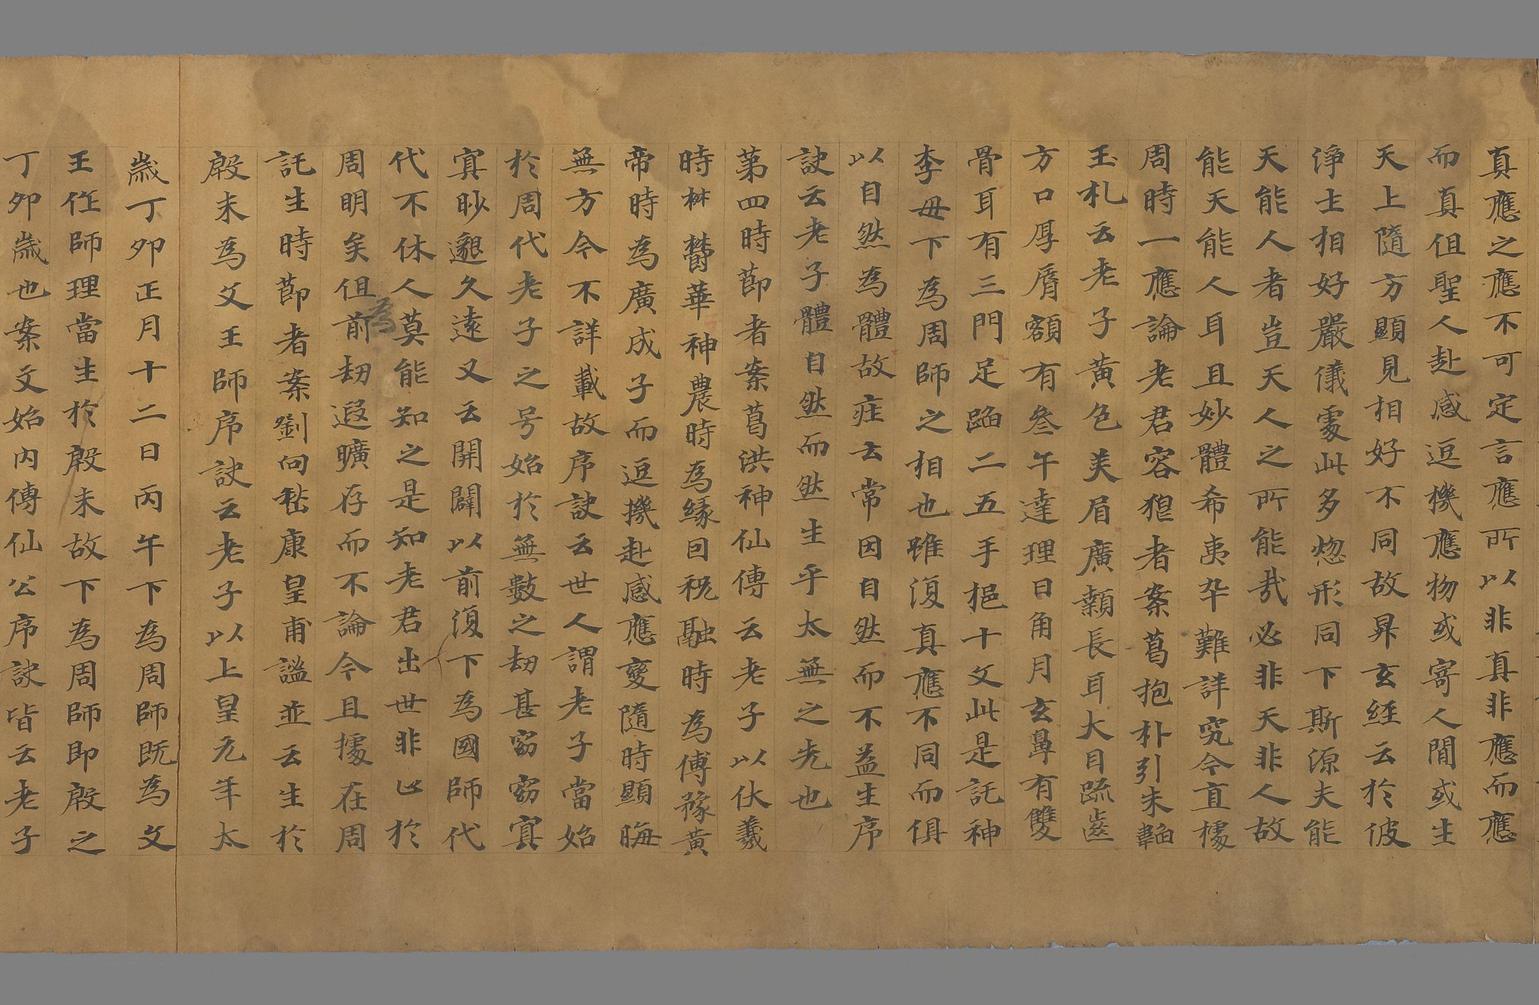 真應之應不可定言應所以非真非應而應
而真但聖人赴感逗機應物或寄人間或生
天上隨方顯見相好不同故昇玄經云於彼
淨土相好嚴儀處此多惚形同下斯源夫能
天能人者豈天人之所能哉必非天非人故
能天能人耳且妙體希夷卒難詳究今直據
周時一應論老君容狠者案葛抱朴引朱韜
玉札云老子黃色美眉廣顙長耳大目疏齒
方口厚脣額有叄午達理日角月玄鼻有雙
骨耳有三門足蹈二五手把十文此是託神
李母下為周師之相也雖復真應不同而俱
以自然為體故疰云常因自然而不益生序
訣云老子體自然而然生乎太無之先也
第四時節者案葛洪神仙傳云老子以伏羲
時為欝華神農時為緣回祝融時為傅豫黃
帝時為廣成子而逗機赴感應變隨時顯晦
無方今不詳載故序訣云世人謂老子當始
於周代老子之号始於無數之劫甚窈窈冥
冥眇邈久遠又云開闢以前復下為國師代
代不休人莫能知之是知老君出世非止於
周明矣但為前劫遐曠存而不論今且據在周
託生時節者案劉向嵇康皇甫謐並云生於
殷末為文王師序訣云老子以上皇元年太
歲丁夘正月十二日丙午下為周師既為文
王作師理當生於殷末故下為周師即殷之
丁夘歲也案文始內傳仙公序訣皆云老子